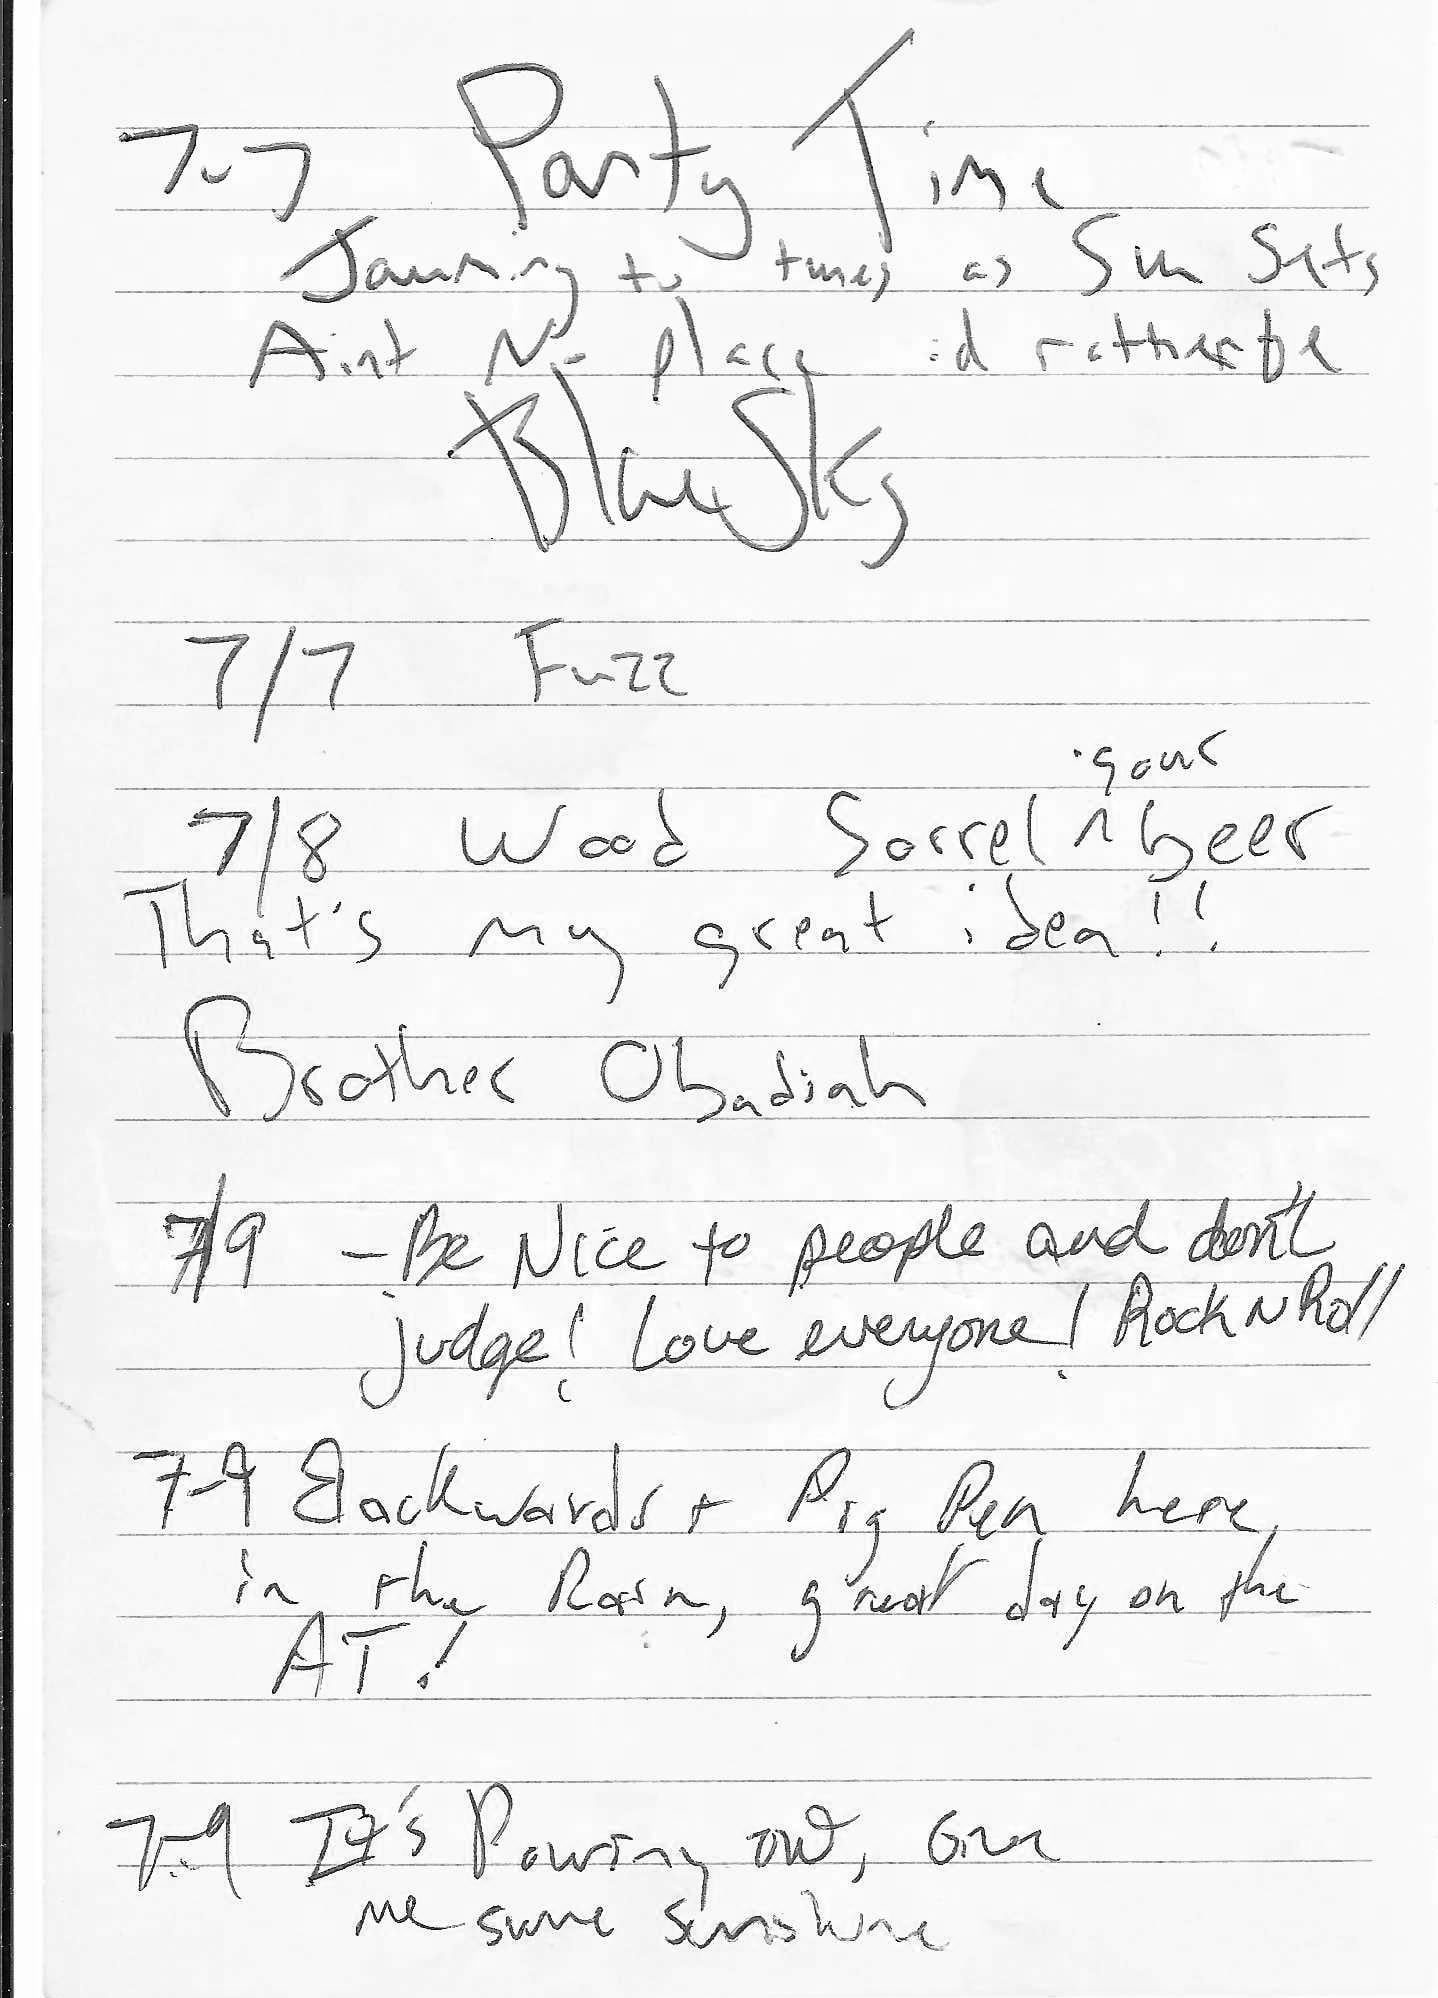 7-7 Party Time
Jamming to tunes as Sun Sets
Aint No place id rather be
Blue Sky
7/7 Fuzz
sour
7/8 Wood Sorrel ^ beer
That's my great idea!!
Brother Obadiah
7/9 - Be Nice to people and don't
judge! Love everyone! Rock N Roll
7-9 Backwards + Pig Pen here,
in the Rain, great day on the
AT!
7-9 It's Pouring out, Give
me some sunshine